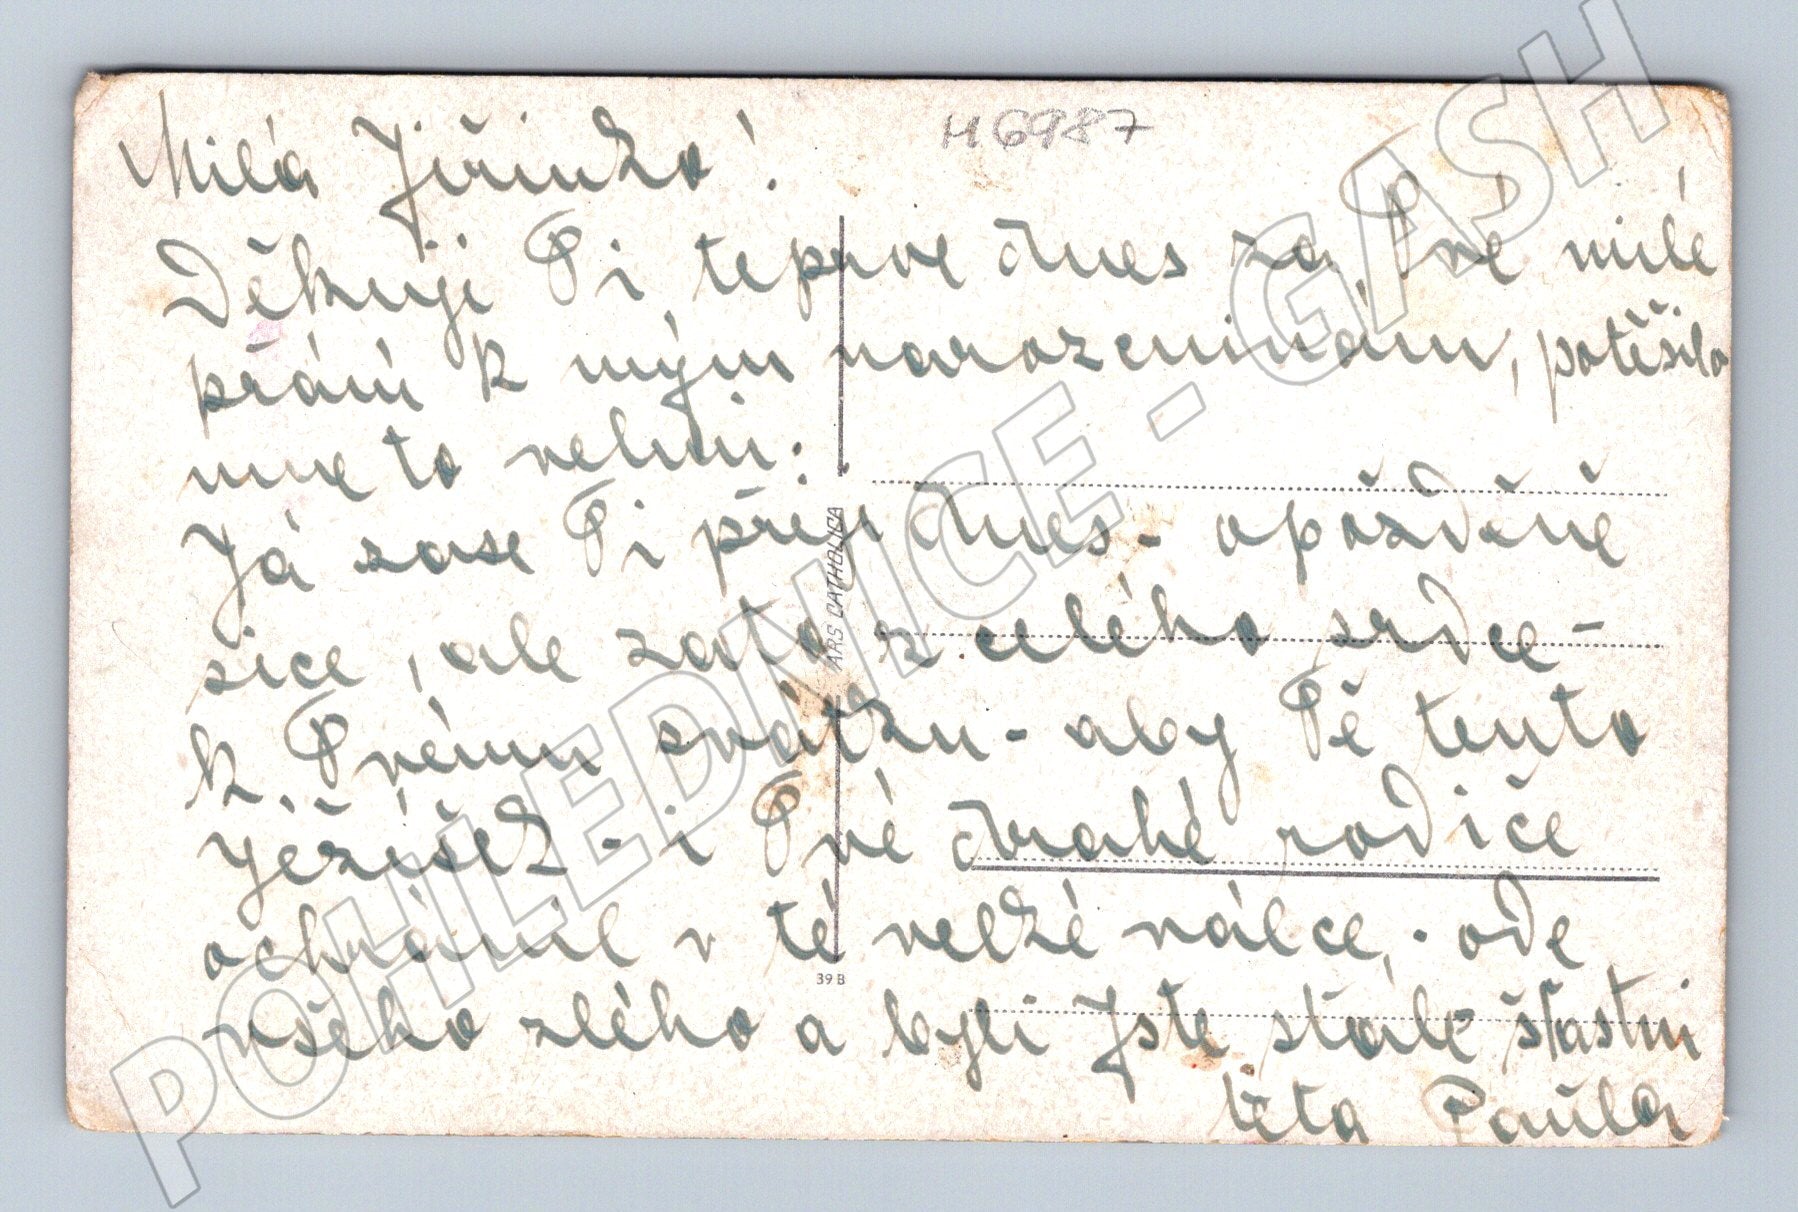 H6987
Milá Jiřinko!
Děkuji Ti teprve dnes za Tvé milé
přání k mým narozeninám, potěšilo
mne to velmi.
Já zase Ti přeji dnes - opožděně
sice, ale zato z celého srdce -
k Tvému svátku - aby Tě tento
Ježíšek - i Tvé drahé rodiče
ochránil v té velké válce, - ode
všeho zlého a byli Jste stále šťastni
teta Paula
ARS CATHOLICA
39 B
POHLEDNICE - GASH